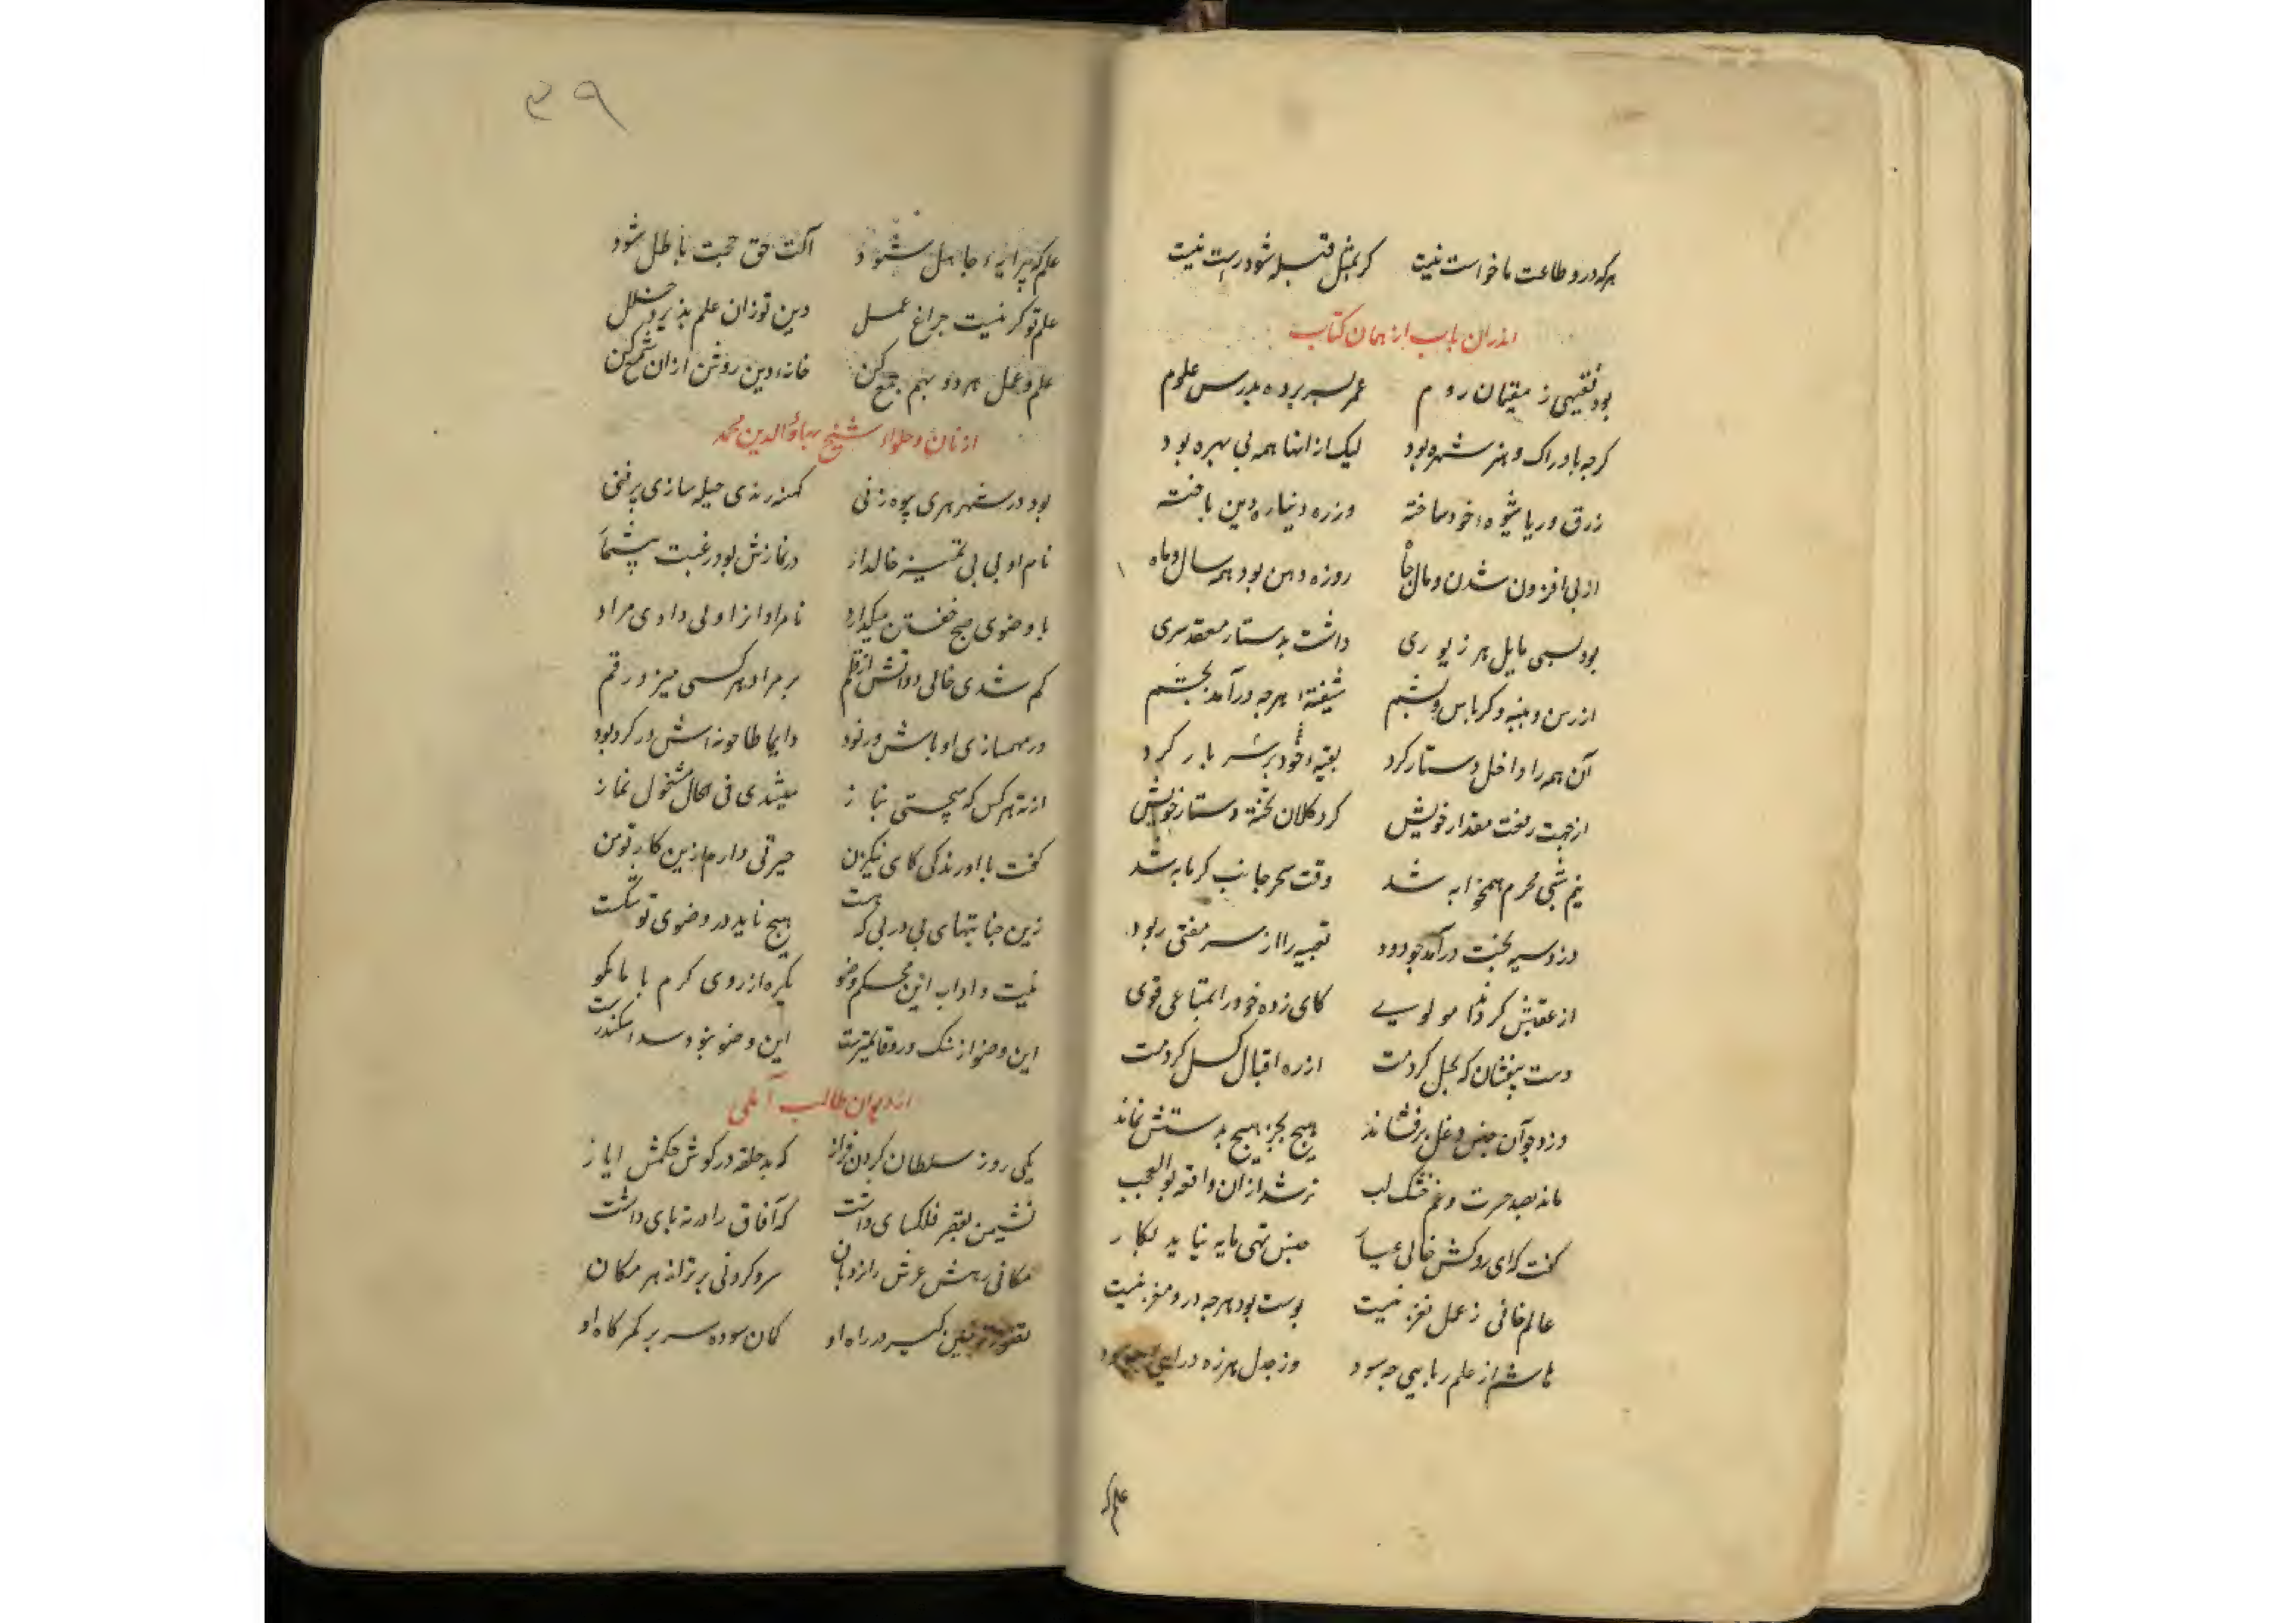 هرکه درو طاعت ما خواست نیست کر بمثل قبله شود راست نیست
اندران باب از همان کتاب
بود فقیهی ز مقیمان روم عمر بسر برده بدرس علوم
کرچه بادراک و هنر شهره بود لیک از انها همه بی بهره بود
زرق و ریا شیوهٔ خود ساخته وز ره دنیا ره دین باخته
از پی افزون شدن و مال و جاه روزه دهن بود همه سال و ماه
بود بسی مایل هر زیوری داشت بدستار معقد سری
از رسن و پنبه و کرباس و پشم شیفتهٔ هرچه درآمد بچشم
آن همه را داخل دستار کرد بقیهٔ خود بر سر بار کرد
از جهت رفعت مقدار خویش کرد کلان تختهٔ دستار خویش
نیم شبی محرم همخوابه شد وقت سحر جانب کرمابه شد
دزد سیه بخت درآمد چو دود تعبیه را از سر مفتی ربود
از عقبش کرد ندا مولویی کای زده خود را بمتاعی قوی
دست بیفشان که بحل کردمت از ره اقبال کسل کردمت
دزد چو آن جنس دغل برفشاند هیچ بجز هیچ بدستش نماند
ماند بصد حسرت و غم خشک لب تر شد از ان واقعه بوالعجب
گفت که ای روکش خالی عیار جنس تهی مایه نیاید بکار
عالم فانی ز عمل نغز نیست پوست بود هرچه درو مغز نیست
هاشم از علم ریایی چه سود وز جدل هرزه درایی چه سود
علم که
۳۹
علم که پیرایهٔ جاهل شود آلت حق حجت باطل شود
علم تو کر نیست چراغ عمل دین تو زان علم پذیرد خلل
علم و عمل هر دو بهم جمع کن خانهٔ دین روشن ازان شمع کن
از نان و حلواء شیخ بهاؤالدین محمد
بود در شهر هری بیوه زنی کهنه رندی حیله سازی پرفنی
نام او بی بی تمیز خالدار در نمازش بود رغبت بیشمار
با وضوی صبح خفتن میکذارد نامرادانرا ولی دادی مراد
کم شدی خالی دواتش از قلم بر مراد هر کسی میزد رقم
در مهمسازی اوباش و رنود دایما طاحونه اش در کرد بود
از ته هر کس که برجستی بناز میشدی فی الحال مشغول نماز
گفت با او رندکی کای نیکزن حیرتی دارم ازین کار تو من
زین جنابتهای پی در پی که هست هیچ ناید در وضوی تو شکست
نیت و اداب این محکم وضو یکره از روی کرم با ما بکو
این وضو از سنک و رو محکمترست این وضو نبود سد اسکندرست
از دیوان طالب آملی
یکی روز سلطان کردن فراز که بد حلقه در کوش حکمش ایاز
نشیمن بقصر فلکسای داشت که آفاق را در ته پای داشت
مکانی رهش عرش را نردبان سروکردنی برتر از هر مکان
کمان سوده سر بر کمرکاه او